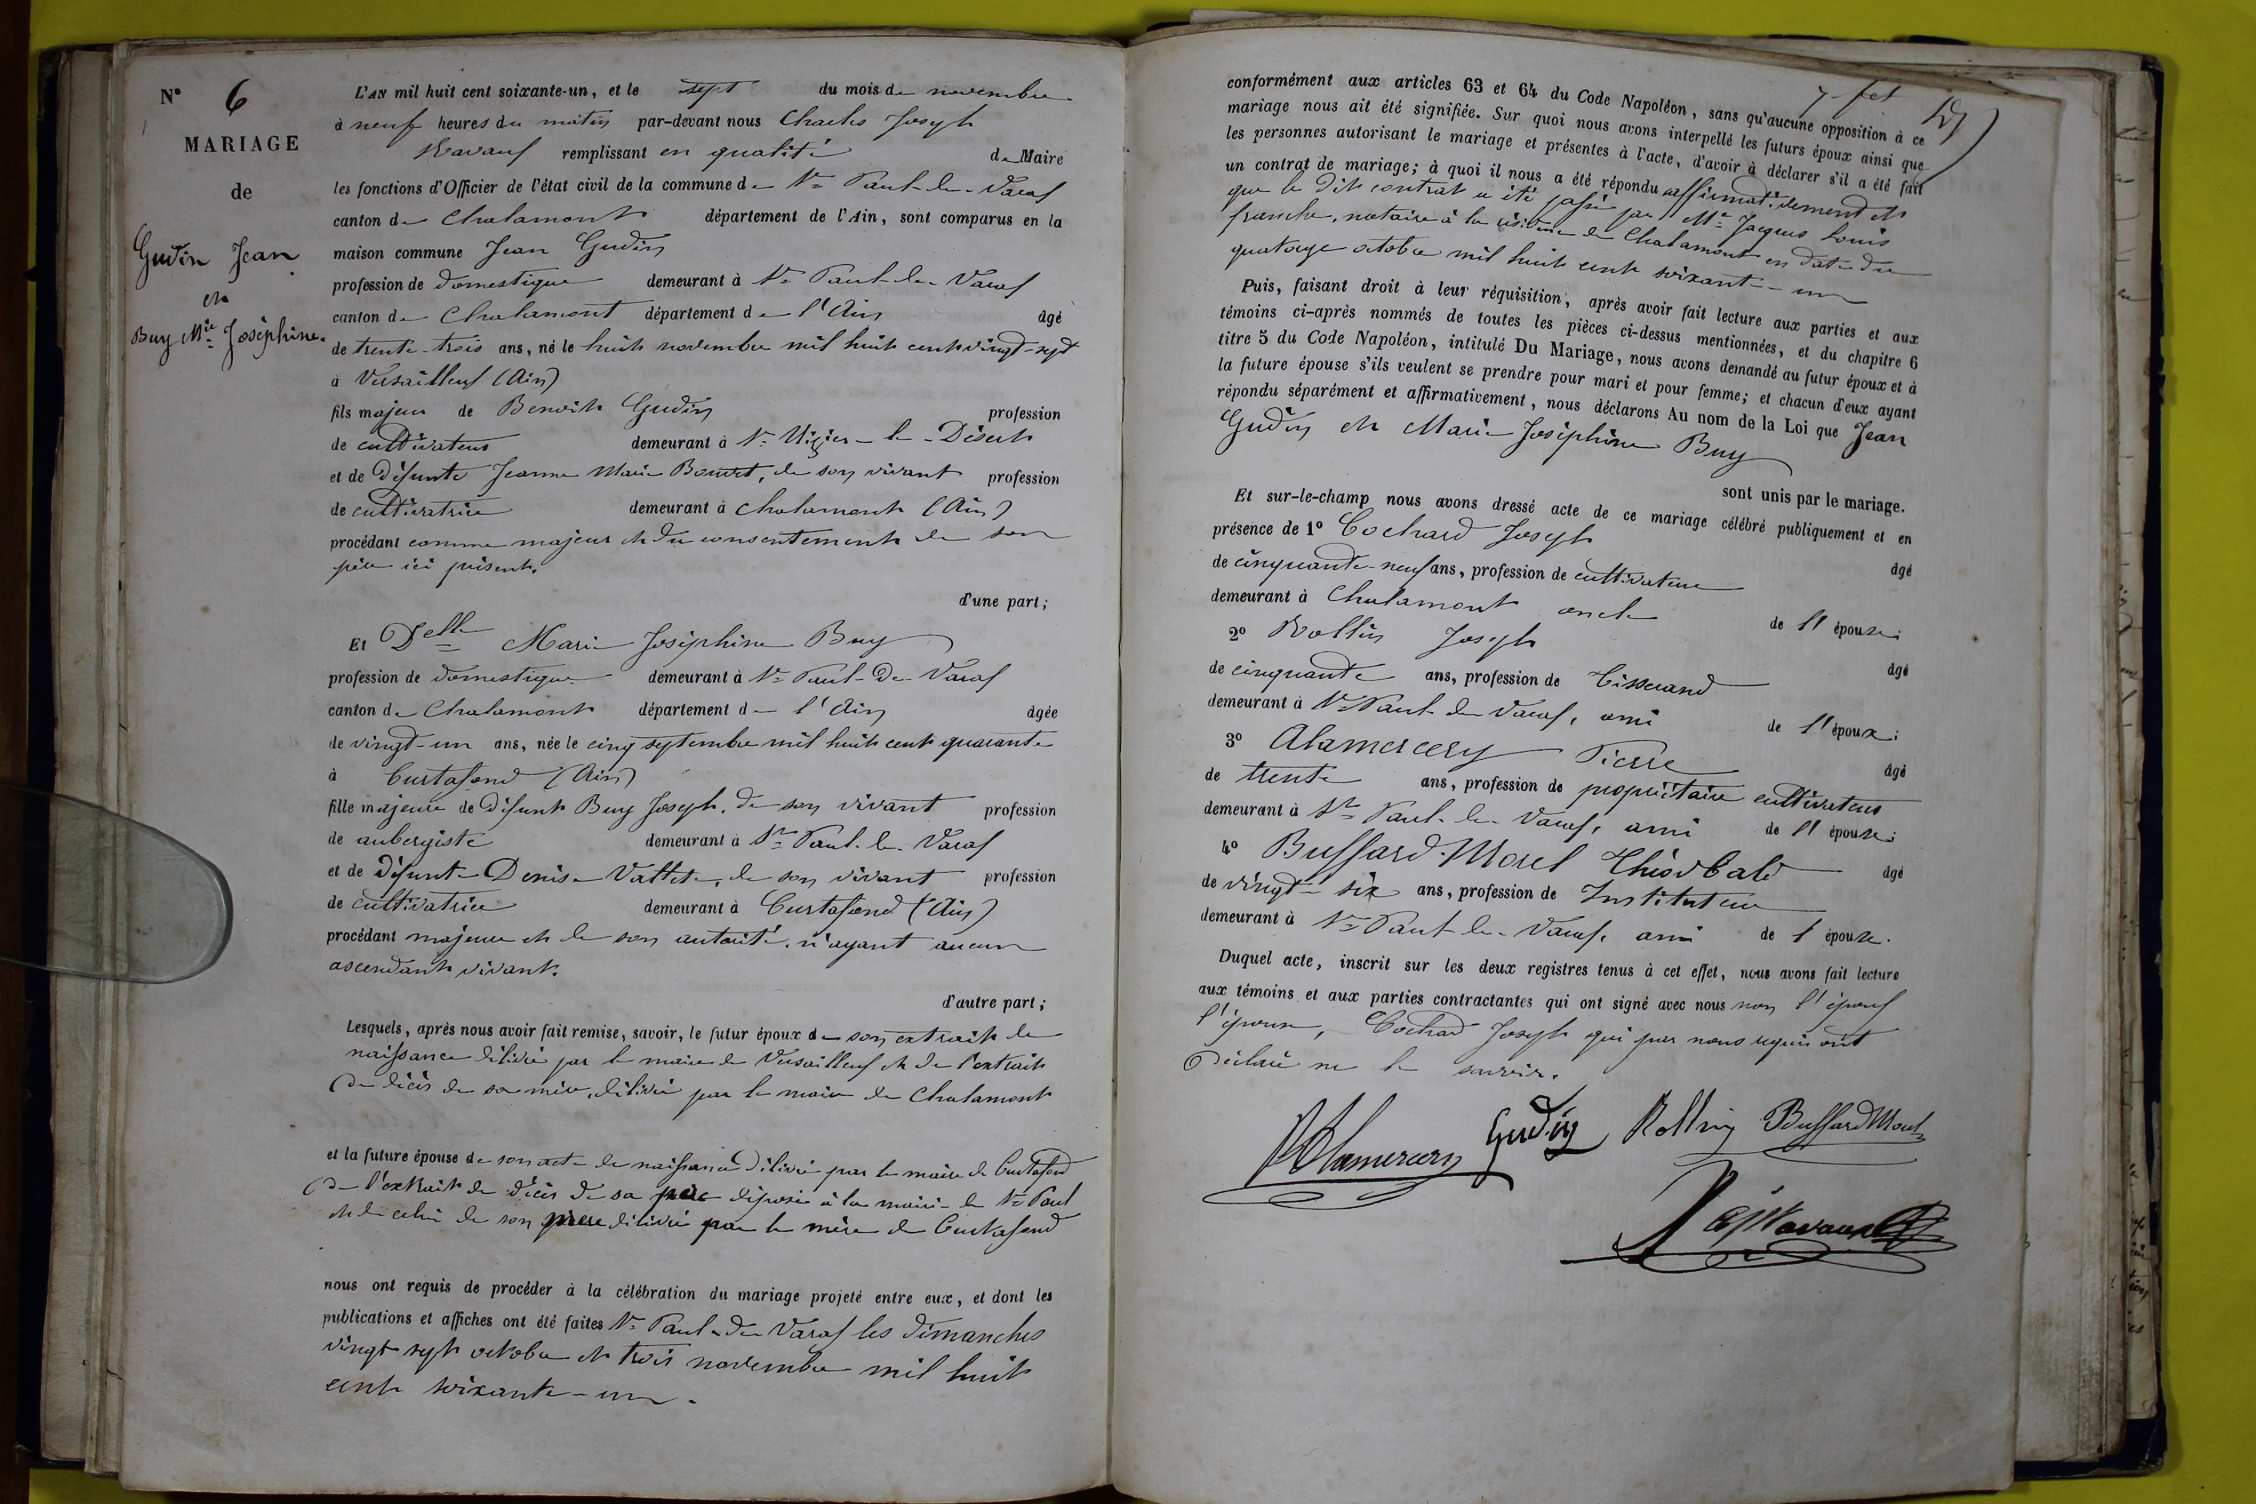 N° 6
MARIAGE
de
Gudin Jean
et
Buy Mie Joséphine.
L'AN mil huit cent soixante-un, et le sept du mois de novembre
à neuf heures du matin par-devant nous Charles Joseph
Ravaux remplissant en qualité de Maire
les fonctions d'Officier de l'état civil de la commune de St Paul-de-Varax
canton de Chalamont département de l'Ain, sont comparus en la
maison commune Jean Gudin
profession de domestique demeurant à St Paul-de-Varax
canton de Chalamont département de l'Ain âgé
de trente-trois ans, né le huit novembre mil huit cent vingt-sept
à Versailleux (Ain)
fils majeur de Benoit Gudin profession
de cultivateur demeurant à St Nizier-le-Désert
et de Défunte Jeanne Marie Bouvet, de son vivant profession
de cultivatrice demeurant à Chalamont (Ain)
procédant comme majeur et du consentement de son
père ici présent.
d'une part;
Et Delle Marie Joséphine Buy
profession de domestique demeurant à St Paul-de-Varax
canton de Chalamont département de l'Ain âgée
de vingt-un ans, née le cinq septembre mil huit cent quarante
à Curtafond (Ain)
fille majeure de Défunt Buy Joseph, de son vivant profession
de aubergiste demeurant à St Paul-de-Varax
et de Défunte Denise Vattet, de son vivant profession
de cultivatrice demeurant à Curtafond (Ain)
procédant majeure et de son autorité, n'ayant aucun
ascendant vivant.
d'autre part;
Lesquels, après nous avoir fait remise, savoir, le futur époux de son extrait de
naissance délivré par le maire de Versailleux et de l'extrait
de décès de sa mère, délivré par le maire de Chalamont
et la future épouse de son acte de naissance délivré par le maire de Curtafond
de l'extrait de décès de sa père déposé à la mairie de St Paul
et de celui de son mère délivré par le mère de Curtafond
nous ont requis de procéder à la célébration du mariage projeté entre eux, et dont les
publications et affiches ont été faites St Paul-de-Varax les dimanches
vingt sept octobre et trois novembre mil huit
cent soixante-un.
conformément aux articles 63 et 64 du Code Napoléon, sans qu'aucune opposition à ce
mariage nous ait été signifiée. Sur quoi nous avons interpellé les futurs époux ainsi que
les personnes autorisant le mariage et présentes à l'acte, d'avoir à déclarer s'il a été fait
un contrat de mariage; à quoi il nous a été répondu affirmativement et
que le dit contrat a été passé par Me Jacques Louis
franche, notaire à la résidence de Chalamont en date du
quatorze octobre mil huit cent soixante-un
Puis, faisant droit à leur réquisition, après avoir fait lecture aux parties et aux
témoins ci-après nommés de toutes les pièces ci-dessus mentionnées, et du chapitre 6
titre 5 du Code Napoléon, intitulé Du Mariage, nous avons demandé au futur époux et à
la future épouse s'ils veulent se prendre pour mari et pour femme; et chacun d'eux ayant
répondu séparément et affirmativement, nous déclarons Au nom de la Loi que Jean
Gudin et Marie Joséphine Buy
sont unis par le mariage.
Et sur-le-champ nous avons dressé acte de ce mariage célébré publiquement et en
présence de 1° Cochard Joseph âgé
de cinquante-neuf ans, profession de cultivateur
demeurant à Chalamont oncle de l'épouse;
2° Rollin Joseph âgé
de cinquante ans, profession de Tisserand
demeurant à St Paul de Varax, ami de l'époux;
3° Alamercery Pierre âgé
de trente ans, profession de propriétaire cultivateur
demeurant à St Paul-de-Varax, ami de l'épouse;
4° Buffard-Morel Théodbald âgé
de vingt-six ans, profession de Instituteur
demeurant à St Paul-de-Varax, ami de l'épouse.
Duquel acte, inscrit sur les deux registres tenus à cet effet, nous avons fait lecture
aux témoins et aux parties contractantes qui ont signé avec nous non l'époux
l'épouse, Cochard Joseph qui par nous requis ont
déclaré ne le savoir.
Alamercery Gudin Rollin Buffard Morel
Ravaux